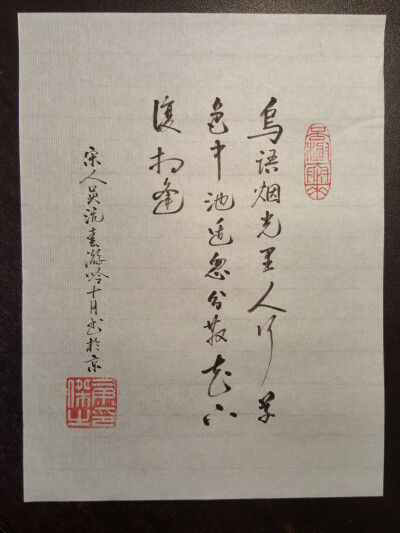 鳥語烟光里人行草
色中池邊忽分散花下
復相逢
宋人吳沆春游吟十月書於京